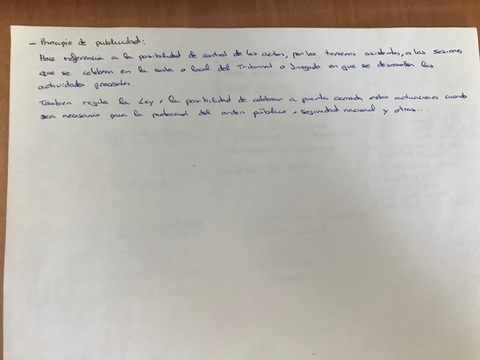 - Principio de publicidad:
Hace referencia a la posibilidad de control de los actos, por los terceros asistentes, a las sesiones
que se celebran en la sala o local del Tribunal o Juzgado en que se desarrollen las
actividades procesales.
Tambien regula la Ley, la posibilidad de celebrar a puerta cerrada estas actuaciones cuando
sea necesario para la proteccion del orden público, seguridad nacional y otras...